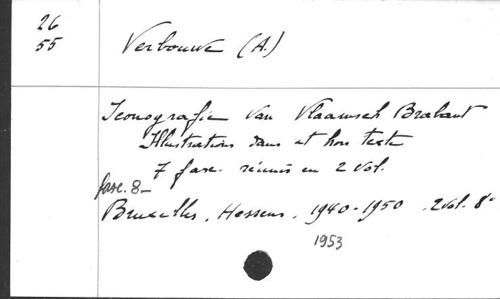 26
55
Verbouwe (A.)
Iconografie van Vlaamsch Brabant
Illustrations dans et hors texte
7 fasc. réunis en 2 vol.
fasc. 8-
Bruxelles, Hessens, 1940-1950 . 2 vol. 8°
1953